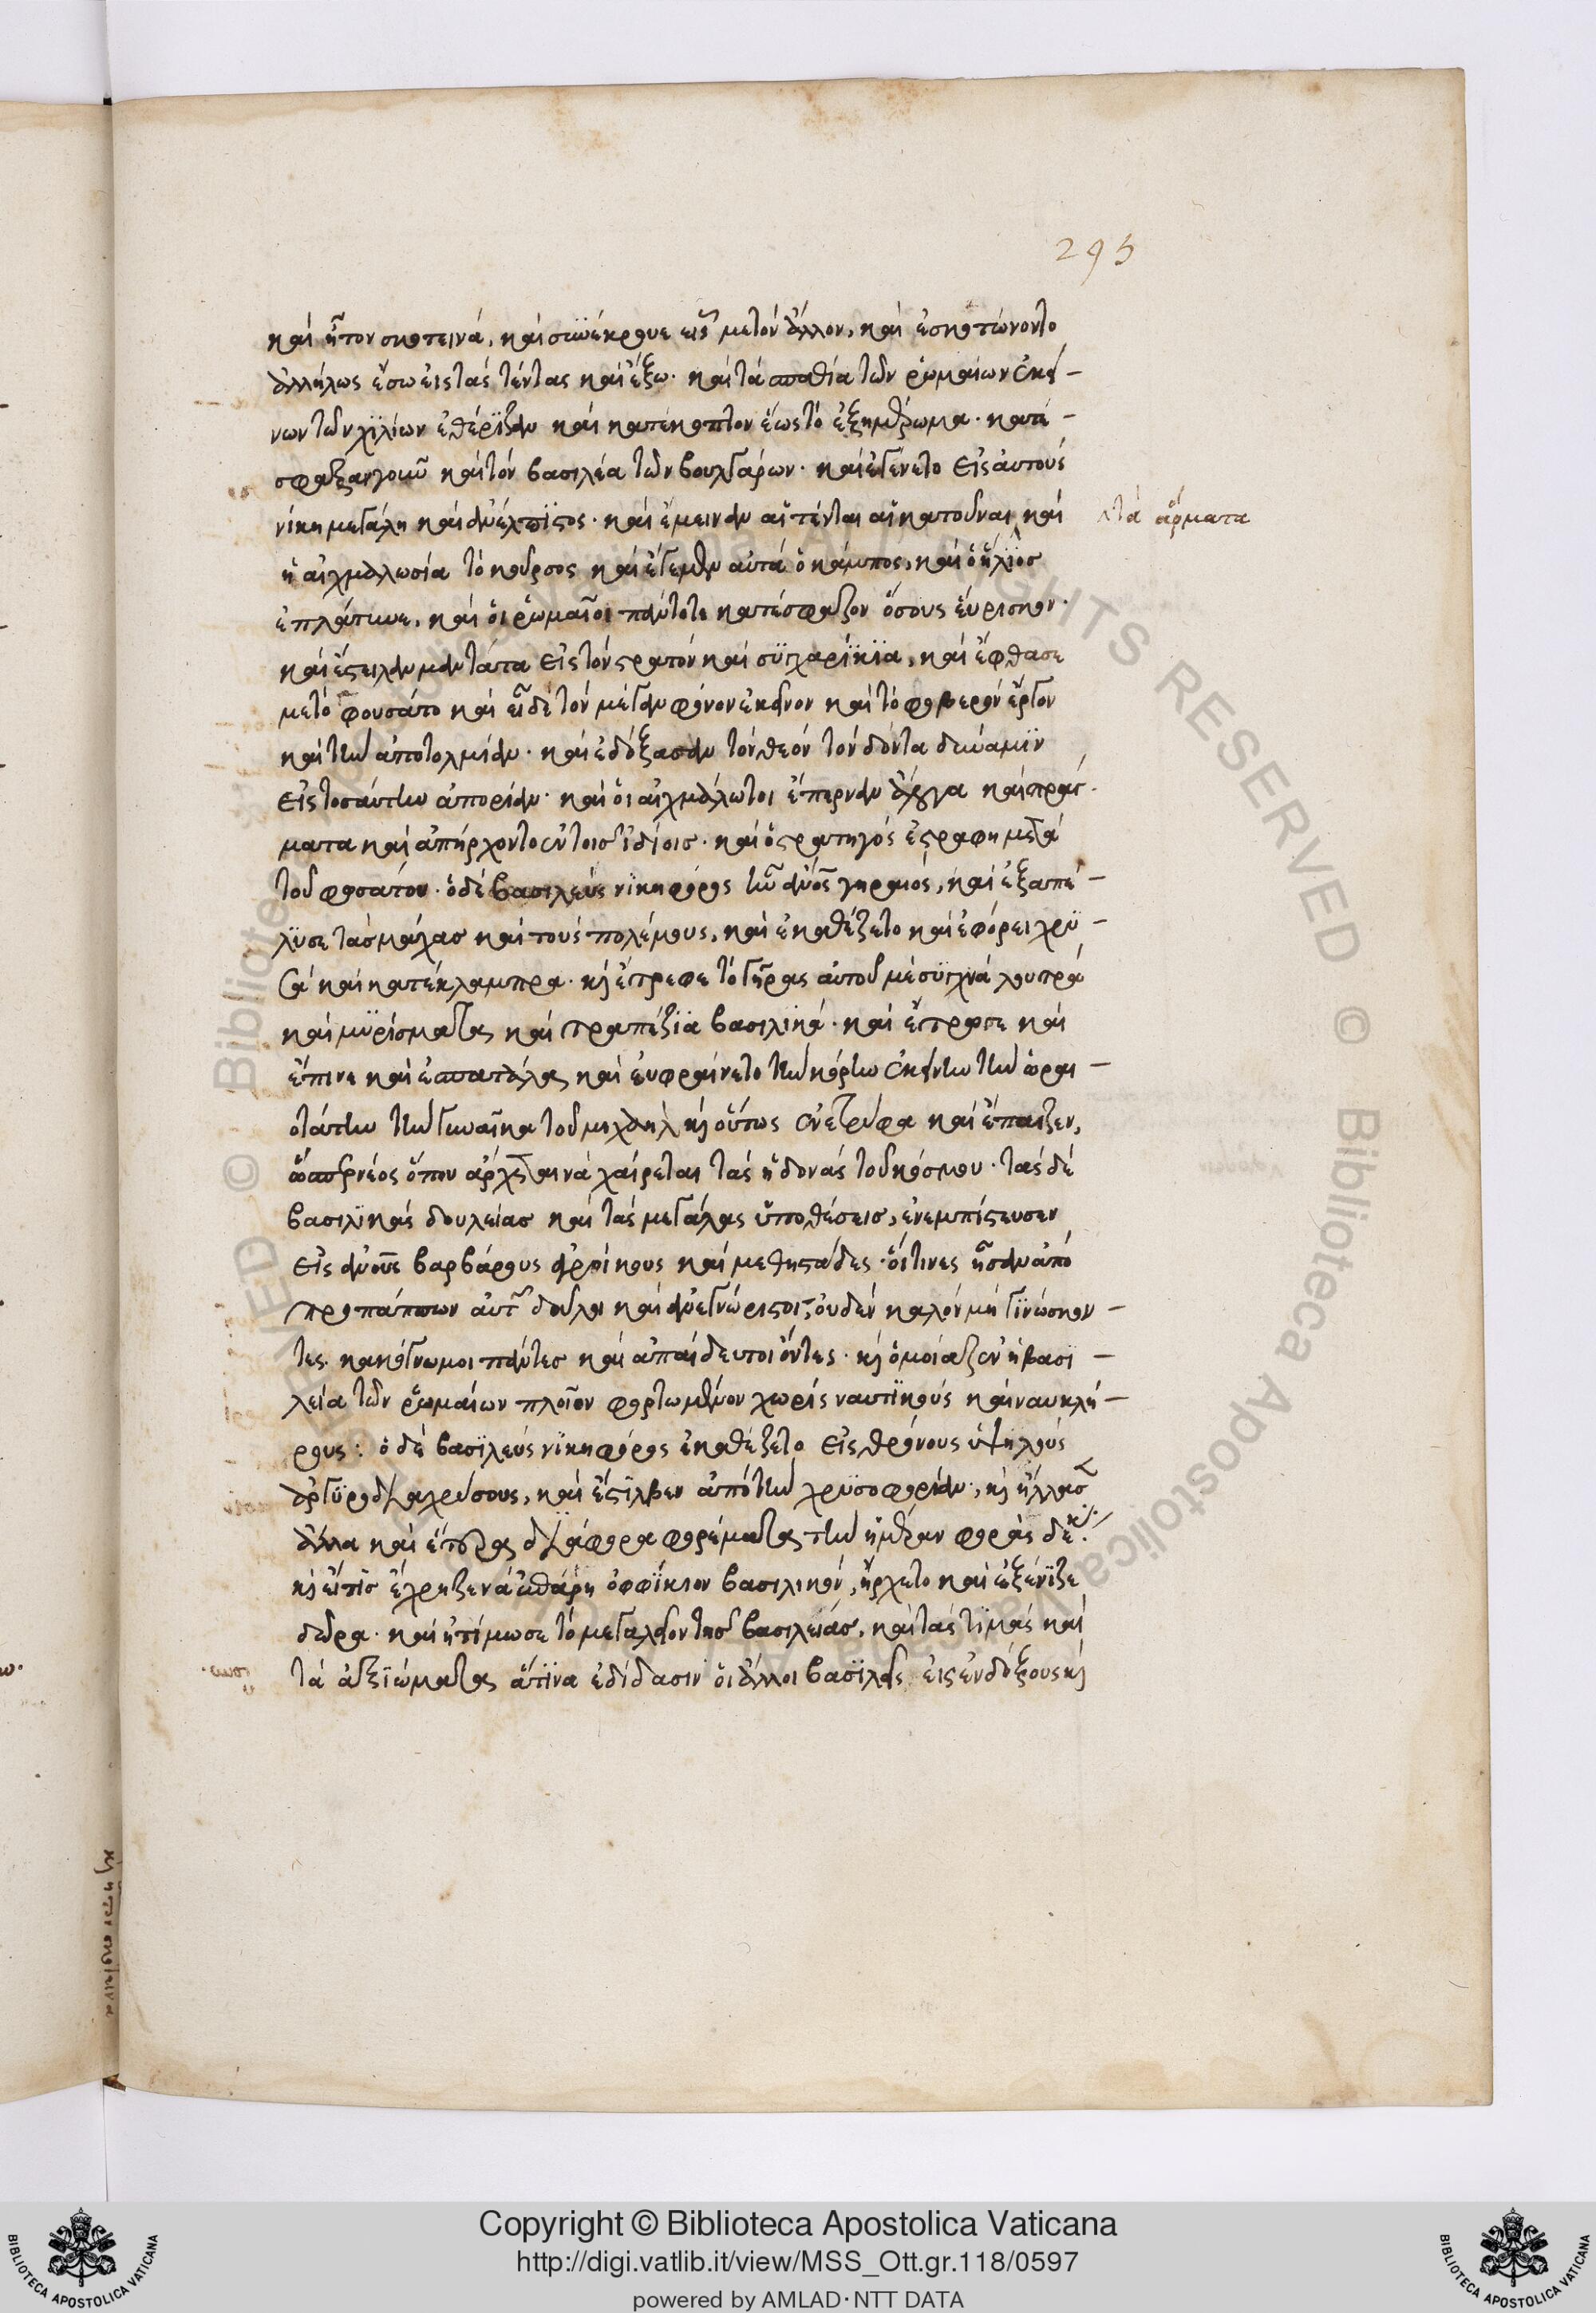 295
καὶ ἦτον σκοτεινά, καὶ συνέκρουε εἷς μετὸν ἄλλον, καὶ ἐσκοτώνοντο
ἀλλήλως ἔσω εἰς τὰς τέντας καὶ ἔξω· καὶ τὰ σπαθία τῶν ῥωμαίων ἐκεί -
νων τῶν χϊλίων ἐθέριζαν καὶ κατέκοπτον ἕως τὸ ἐξημέρωμα· κατέ -
σφαξαν γοῦν καὶ τὸν βασιλέα τῶν βουλγάρων· καὶ ἐγένετο εἰς αὐτοὺς
νίκη μεγάλη καὶ ἀνέλπϊστος· καὶ ἔμειναν αἱ τένται αἱ κατοῦναι καὶ
τὰ ἅρματα
ἡ αἰχμαλωσία τὸ κοῦρσος καὶ ἔγεμεν αὐτὰ ὁ κάμπος, καὶ ὁ ἥλϊος
ἐπλάτυνε, καὶ οἱ ῥωμαῖοι πάντοτε κατέσφαζον ὅσους εὕρισκον·
καὶ ἔστειλαν μαντάτα εἰς τὸν στρατὸν καὶ σϋγχαρίκϊα, καὶ ἔφθασε
μετὸ φουσάτο καὶ εἶδε τὸν μέγαν φόνον ἐκεῖνον καὶ τὸ φοβερὸν ἔργον
καὶ τὴν ἀποτολμίαν· καὶ ἐδόξασαν τὸν θεὸν τὸν δόντα δύναμϊν
εἰς τοσαύτην ἀπορίαν· καὶ οἱ αἰχμάλωτοι ἔπερναν ἄλογα καὶ πράγ -
ματα καὶ ἀπήρχοντο ἐν τοῖς ἰδίοις· καὶ ὁ στρατηγὸς ἐστράφη μετὰ
τοῦ φοσάτου· ὁ δὲ βασιλεὺς νϊκηφόρος ἦν ἄνος γηραιός, καὶ ἐξαπέ -
λϋσε τὰς μάχας καὶ τοὺς πολέμους, καὶ ἐκαθέζετο καὶ ἐφόρει χρϋ -
σᾶ καὶ κατέκλαμπρα· κ(αὶ) ἔτρεφε τὸ γῆρας αὐτοῦ μὲ σϋχνὰ λουτρὰ
καὶ μϋρίσματα, καὶ τραπέζϊα βασιλϊκά· καὶ ἔτρωσε καὶ
ἔπινε καὶ ἐσπατάλα, καὶ εὐφραίνετο τὴν κόρην ἐκείνην τὴν ὡραι -
οτάτην τὴν γυναῖκα τοῦ μιχαὴλ κ(αὶ) οὕτως ἐνετρύφα καὶ ἔπαιζεν,
ὥσπερ νέος ὅπου ἄρχεται νὰ χαίρεται τὰς ἡδονὰς τοῦ κόσμου· τὰς δὲ
βασιλϊκὰς δουλείας καὶ τὰς μεγάλας ὑποθέσεις, ἐνεμπίστευσεν
εἰς ἀνους βαρβάρους ἀγροίκους καὶ μεθηστάδες· οἵτινες ἦσαν ἀπὸ
προπάππων αὐτ(ῶν) δοῦλοι καὶ ἀνεγνώριστοι, οὐδὲν καλὸν μὴ γϊνώσκον -
τες· κακόγνωμοι πάντες καὶ ἀπαίδευτοι ὄντες· κ(αὶ) ὁμοίαζεν ἡ βασϊ -
λεία τῶν ῥωμαίων πλοῖον φορτωμένον χωρὶς ναυτϊκοὺς καὶ ναυκλή -
ρους: ὁ δὲ βασϊλεὺς νϊκηφόρος ἐκαθέζετο εἰς θρόνους ὑψηλοὺς
ἀργϋροδιαχρύσους, καὶ ἔστϊλβεν ἀπὸ τὴν χρϋσοφορίαν, κ(αὶ) ἤλλασ(σεν)
ἄλλα καὶ ἕτερα διάφορα φορέματα, τὴν ἡμέραν φοραῖς δέκ(α)·
κ(αὶ) εἴτις ἔχρηζε νὰ ἐπάρη ὀφφϊκιον βασιλικὸν, ἤρχετο καὶ ἐξένϊζε
δῶρα· καὶ ἠτίμωσε τὸ μεγαλεῖον τῆς βασιλείας, καὶ τὰς τϊμὰς καὶ
τὰ ἀξϊώματα, ἅτϊνα ἐδίδασιν οἱ ἄλλοι βασϊλεῖς εἰς ἐνδόξους κ(αὶ)
κ(αὶ) ἦτον σκοτεινὰ
Copyright © Biblioteca Apostolica Vaticana
http://digi.vatlib.it/view/MSS_Ott.gr.118/0597
powered by AMLAD·NTT DATA
BIBLIOTECA APOSTOLICA VATICANA
BIBLIOTECA APOSTOLICA VATICANA